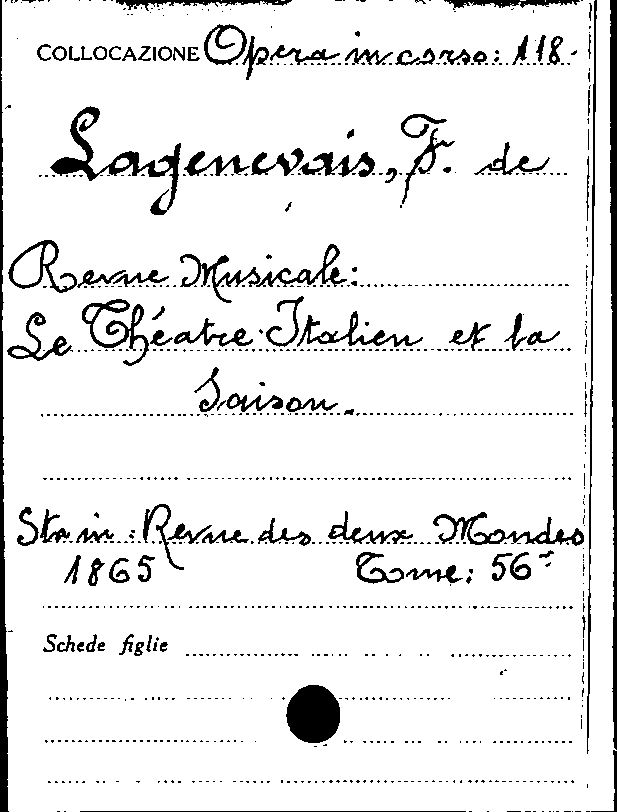 COLLOCAZIONE Opera in corso: 118.
Lagenevais, F. de
Revue Musicale:
Le Théatre Italien et la
Saison.
Sta in: Revue des deux Mondes
1865 Tome: 56
Schede figlie